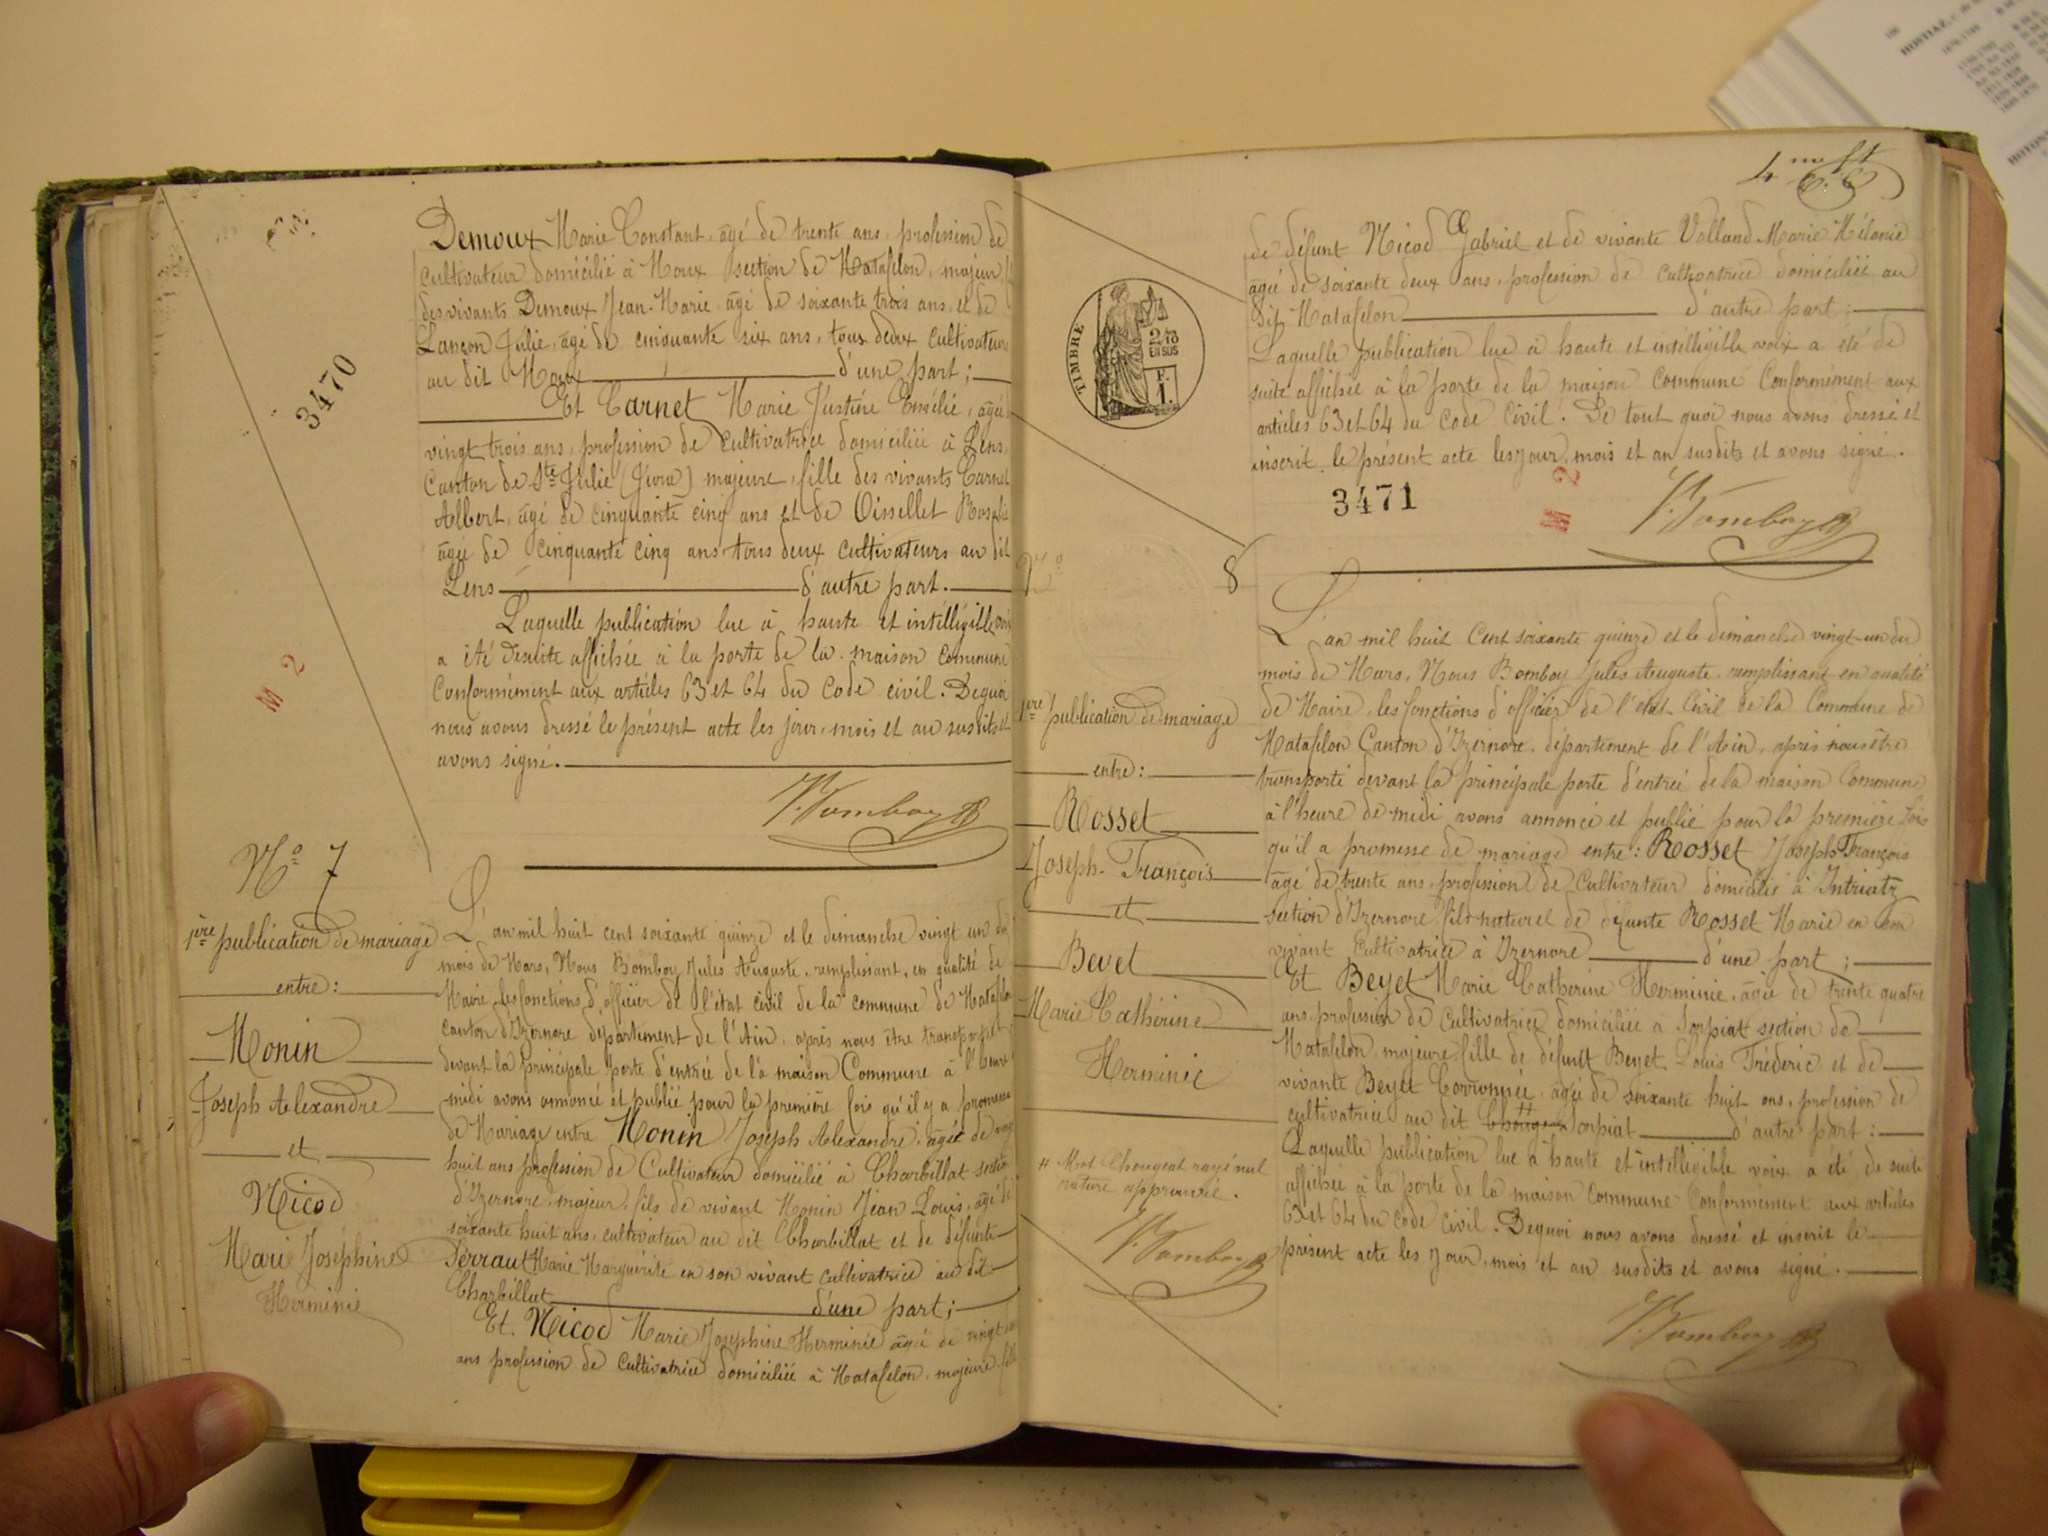 3470
M 2
Demoux Marie Constant, âgé de trente ans, profession de
cultivateur domicilié à Moux section de Matafelon, majeur,
des vivants Demoux Jean-Marie, âgé de soixante trois ans, et de
Lançon Julie, âgé de cinquante six ans, tous deux cultivateurs
au dit Moux d'une part;
Et Carnet Marie Justine Emélie, âgée
vingt trois ans, profession de cultivatrice domiciliée à Lens,
Canton de Ste Julie (Jura) majeure, fille des vivants Carnet
Albert, âgé de cinquante cinq ans et de Oissellet Rosalie
âgée de cinquante cinq ans tous deux cultivateurs au dit
Lens d'autre part.
Laquelle publication lue à haute et intélligible voix
a été desuite affichée à la porte de la maison commune
Conformément aux articles 63 et 64 du Code civil. Dequoi
nous avons dressé le présent acte les jour, mois et an susdits et
avons signé.
N° 7
1ère publication de mariage
entre:
Monin
Joseph Alexandre
et
Nicod
Marie Joséphine
Herminie
L'an mil huit cent soixante quinze et le dimanche vingt un du
mois de Mars, Nous Bomboy Jules Auguste, remplissant, en qualité de
Maire les fonctions d'officier de l'état civil de la commune de Matafelon
canton d'Izernore département de l'Ain, après nous être transporté
devant la principale porte d'entrée de la maison Commune à l'heure
midi avons annoncé et publié pour la première fois qu'il y a promesse
de Mariage entre Monin Joseph Alexandre, âgée de vingt
huit ans profession de Cultivateur domicilié à Charbillat section
d'Izernore, majeur, fils de vivant Monin Jean Louis, âgé de
soixante huit ans, cultivateur au dit Charbillat et de défunte
Perraut Marie Marguérite en son vivant cultivatrice au dit
Charbillat d'une part;
Et. Nicod Marie Joséphine Herminie âgée de vingt
ans profession de Cultivatrice domiciliée à Matafelon, majeure fille
4me ft
TIMBRE
2/10
EN SUS
F.
1.
de défunt Nicod Gabriel et de vivante Volland Marie Mélanie
âgée de soixante deux ans, profession de cultivatrice domiciliée au
dit Matafelon d'autre part;
Laquelle publication lue à haute et intelligible voix a été de
suite affichée à la porte de la maison commune Conformément aux
articles 63 et 64 du Code civil. De tout quoi nous avons dressé et
inscrit le présent acte les jour, mois et an susdits et avons signé.
3471
M 2
N° 8
1ère publication de mariage
entre:
Rosset
Joseph-François
et
Beyet
Marie Cathérine
Herminie
# Mot Chougeat rayé nul
rature approuvée.
L'an mil huit Cent soixante quinze et le dimanche vingt-un du
mois de Mars, Nous Bomboy Jules Auguste remplissant en qualité
de Maire, les fonctions d'officier de l'état Civil de la Commune de
Matafelon Canton d'Izernore, département de l'Ain, après nous être
transporté devant la principale porte d'entrée de la maison Commune
à l'heure de midi avons annoncé et publié pour la première fois
qu'il a promesse de mariage entre: Rosset Joseph François
âgé de trente ans, profession de Cultivateur domicilié à Intriatz
section d'Izernore fils naturel de défunte Rosset Marie en son
vivant cultivatrice à Izernore d'une part;
Et Beyet Marie Catherine Herminie, âgée de trente quatre
ans profession de Cultivatrice domiciliée à Corpiat section de
Matafelon, majeure fille de défunt Beyet Louis Fréderic et de
vivante Beyet Corronnée, âgée de soixante huit ans, profession de
cultivatrice au dit Chougeat Corpiat d'autre part:
Laquelle publication lue à haute et intelligible voix a été de suite
affichée à la porte de la maison commune Conformément aux articles
63 et 64 du Code civil. Dequoi nous avons dressé et inscrit le
présent acte les jour, mois et an susdits et avons signé.